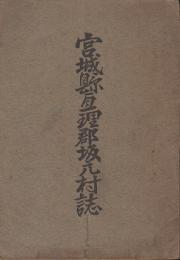 宮城縣亘理郡坂元村誌